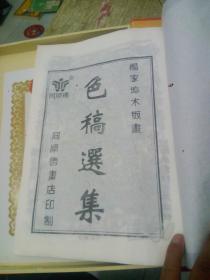 楊家埠木板畫
色稿選集
同順德畫店印制
同順德
®